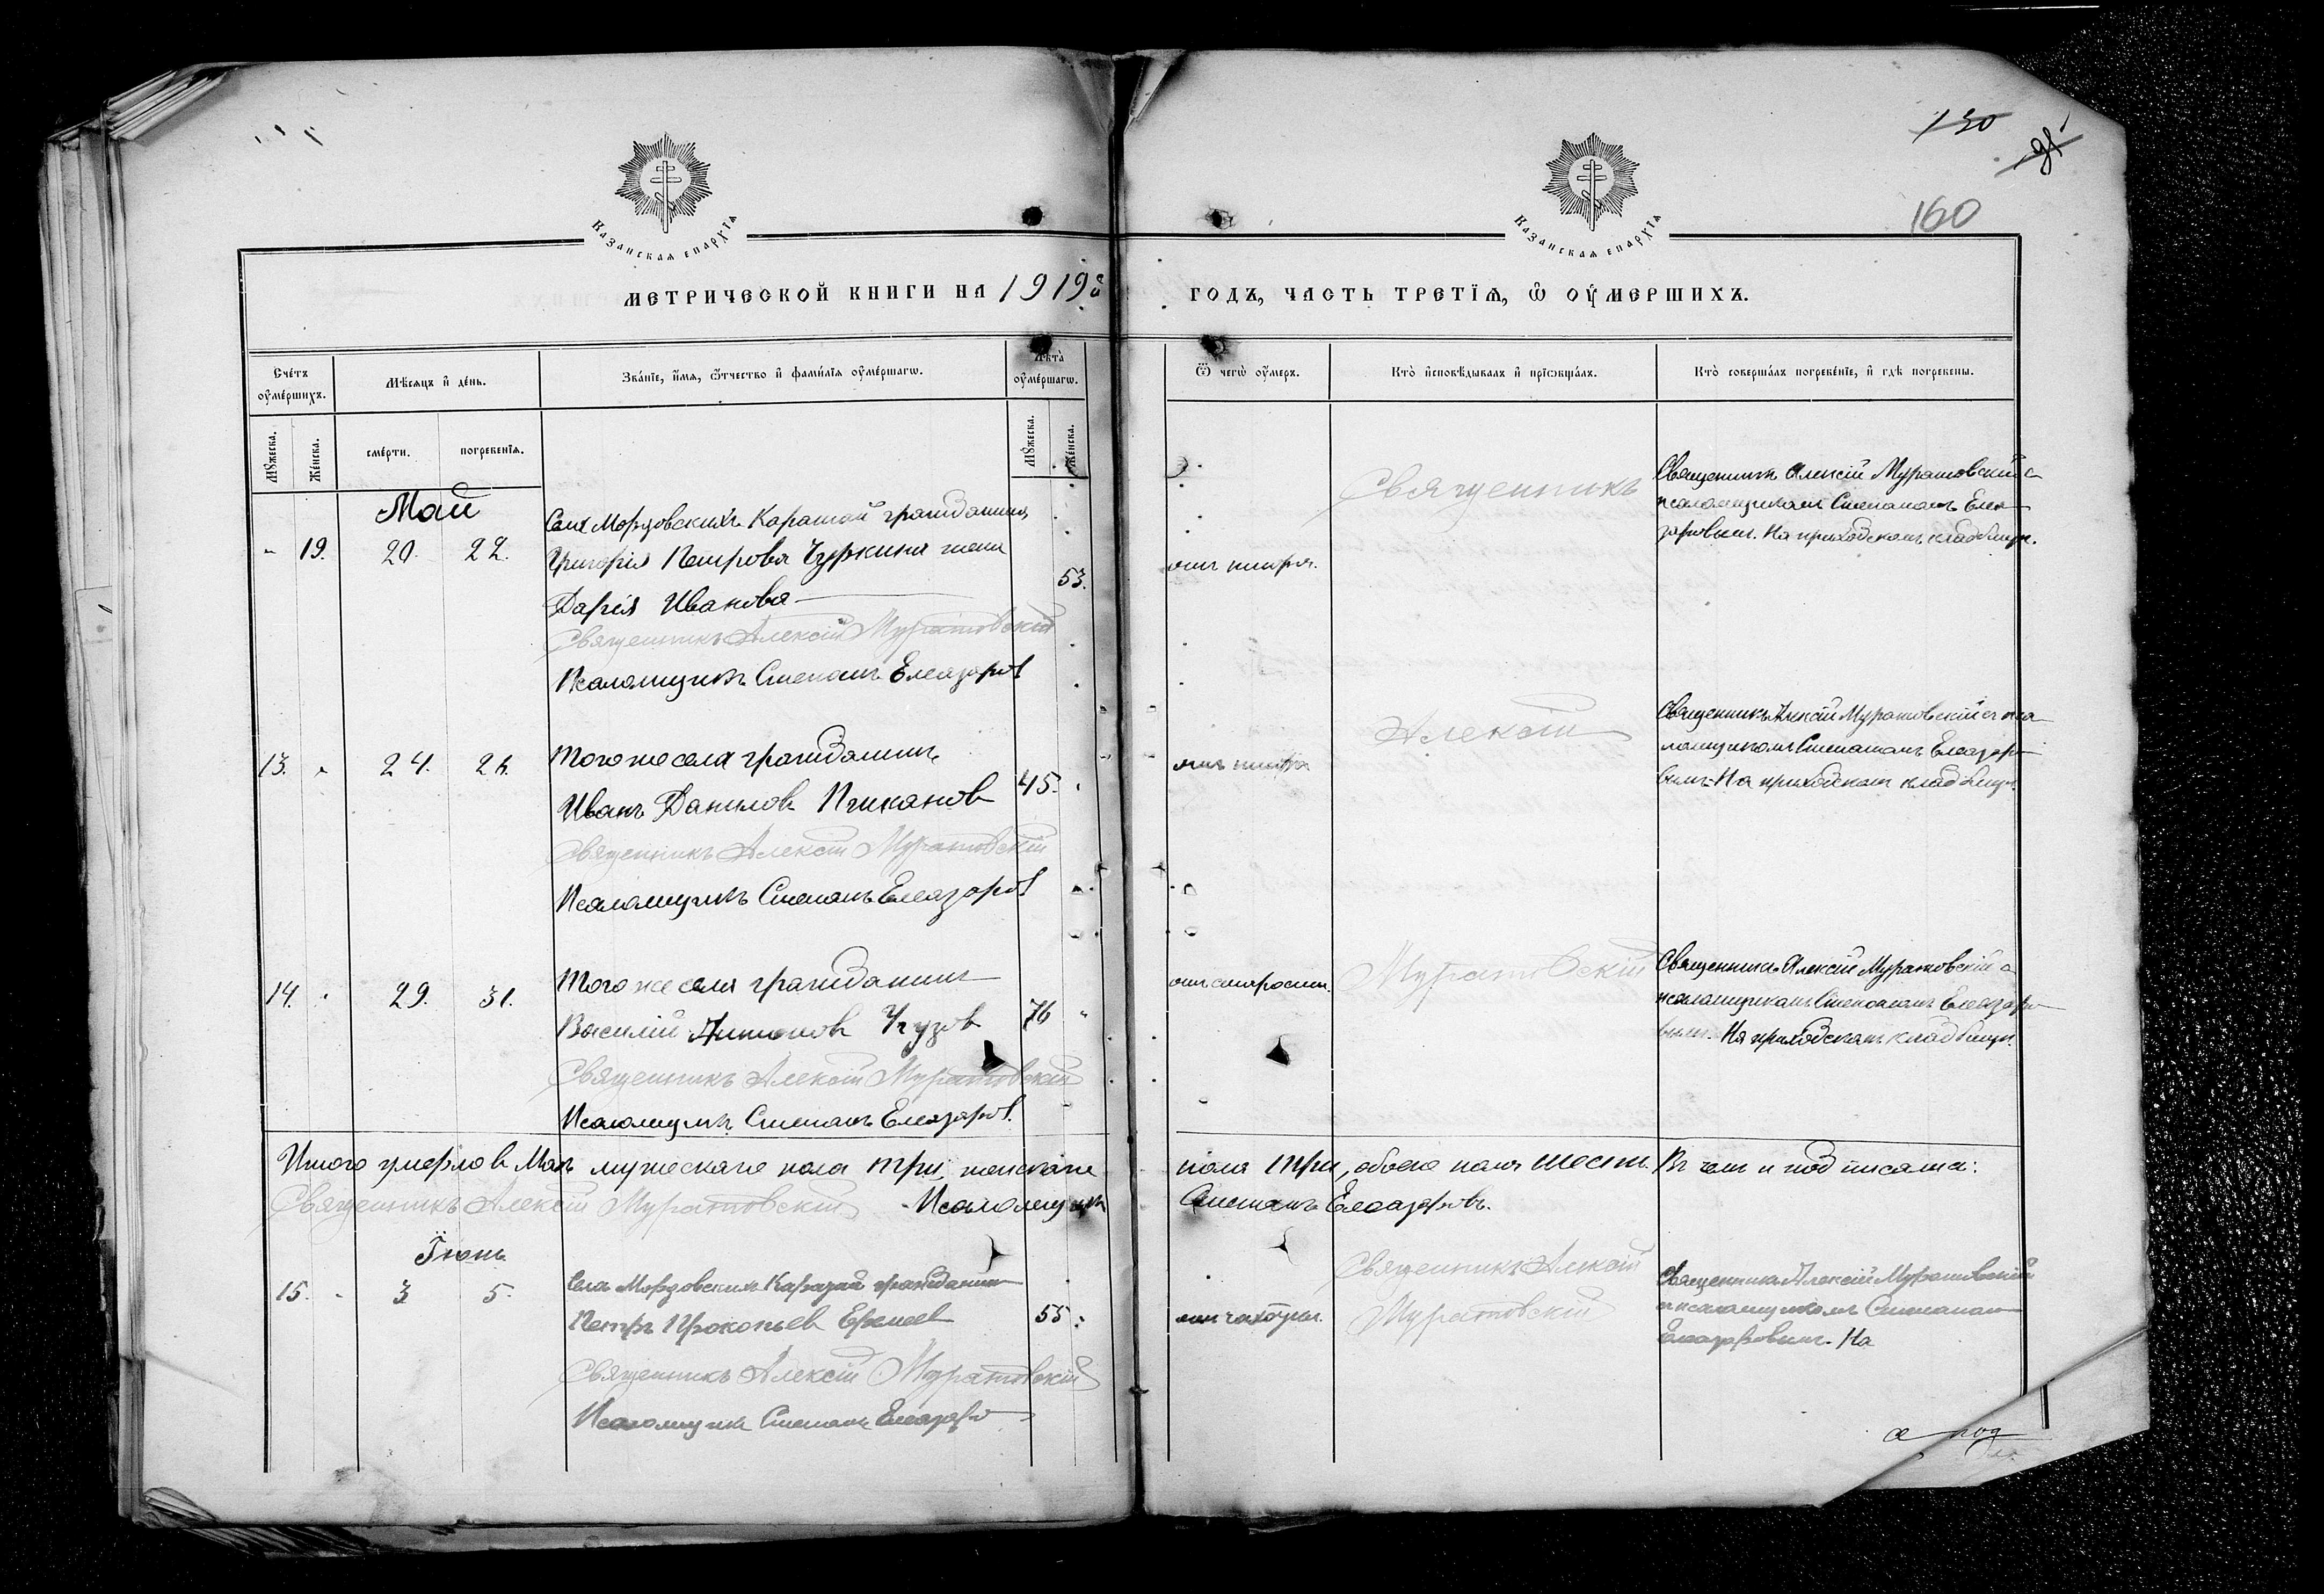 130
91
160
Казанская епархїѧ
Казанская епархїѧ
МЕТРИЧЕСКОЙ КНИГИ НА 1919й
ГОДЪ, ЧАСТЬ ТРЕТЇѦ, Ѡ ОУМЕРШИХЪ.
Счетъ оумершихъ.
Мѣсѧцъ и день.
Званїе, имѧ, ѿчество и фамилїѧ оумершагѡ.
Лѣта оумершагѡ.
Ѿ чегѡ оумеръ.
Кто исповѣдывалъ и прїѡбщалъ.
Кто совершалъ погребенїе, и гдѣ погребены.
Мꙋжеска.
Женска.
смерти.
погребенїѧ.
Мꙋжеска.
Женска.
Май
Села Мордовскихъ Каратай гражданина
19. 20. 22. Григорія Петрова Чуркина жена
Дарія Иванова
53.
Священникъ Алексій Муратовскій
Псаломщикъ Степанъ Елеазаров
отъ тифа.
Священникъ
Священникъ Алексій Муратовскій с
псаломщикомъ Степаномъ Елеа-
заровымъ. На приходскомъ кладбищѣ.
13. 24. 26. Того же села гражданинъ
Иванъ Данилов 45.
Священникъ Алексій Муратовскій
Псаломщикъ Степанъ Елеазаров
отъ тифа
Алексій
Священникъ Алексій Муратовскій съ пса-
ломщикомъ Степаномъ Елеазаро-
вымъ. На приходскомъ кладбищѣ.
14. 29. 31. Того же села гражданинъ
Василій Антонов 76
Священникъ Алексій Муратовскій
Псаломщикъ Степанъ Елеазаров.
отъ старости.
Муратовскій
Священникъ Алексій Муратовскій с
псаломщикомъ Степаномъ Елеазаро-
вымъ. На приходскомъ кладбищѣ.
Итого умерло в Маѣ мужескаго пола три, женскаго
пола три, обоего пола шесть. Въ чемъ и подписалис:
Священникъ Алексій Муратовскій Псаломщикъ
Степанъ Елеазаровъ.
Іюнь
15. 3 5. Села Мордовскихъ Каратай гражданинъ
Петръ Прокопьев Еремеев 55
Священникъ Алексій Муратовскій
Псаломщикъ Степанъ Елеазаров
отъ чахотки.
Священникъ Алексій
Муратовскій
Священникъ Алексій Муратовскій
с псаломщикомъ Степаномъ
Елеазаровымъ. На